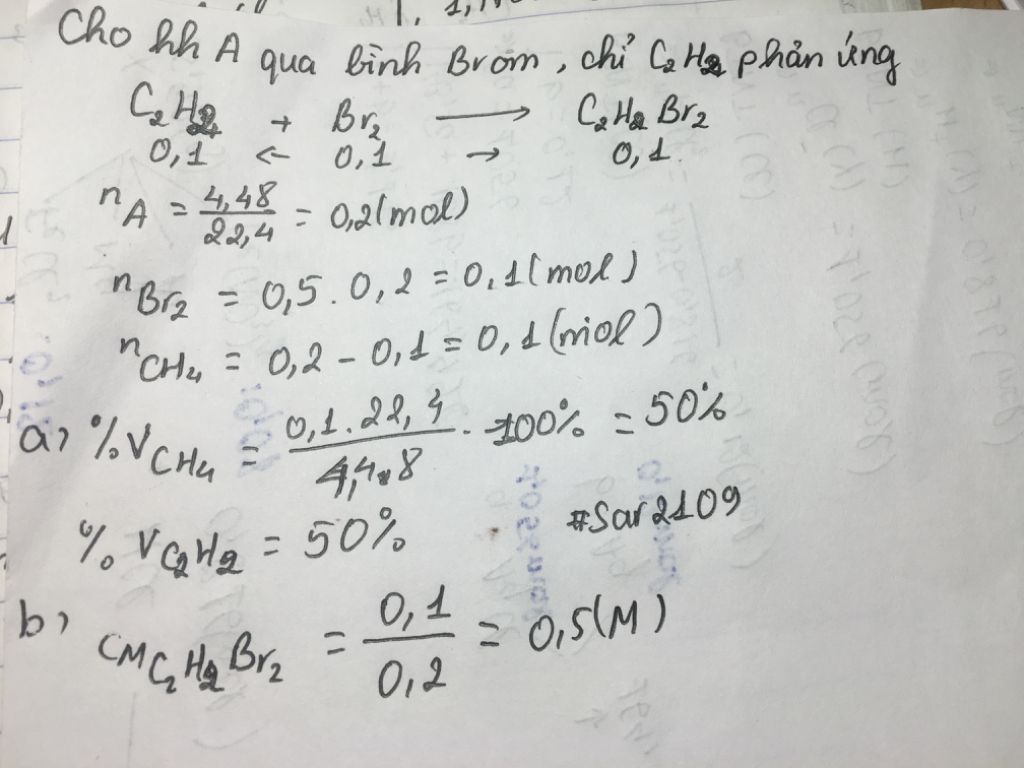 Cho hh A qua bình Brom, chỉ C₂H₂ phản ứng
C₂H₂ + Br₂ → C₂H₂Br₂
0,1 ← 0,1 → 0,1.
nA = 4,48/22,4 = 0,2(mol)
nBr₂ = 0,5 . 0,2 = 0,1(mol)
nCH₄ = 0,2 - 0,1 = 0,1(mol)
a) %VCH₄ = 0,1.22,4/4,48 . 100% = 50%
%VC₂H₂ = 50% #Sar2109
b) CMC₂H₂Br₂ = 0,1/0,2 = 0,5(M)